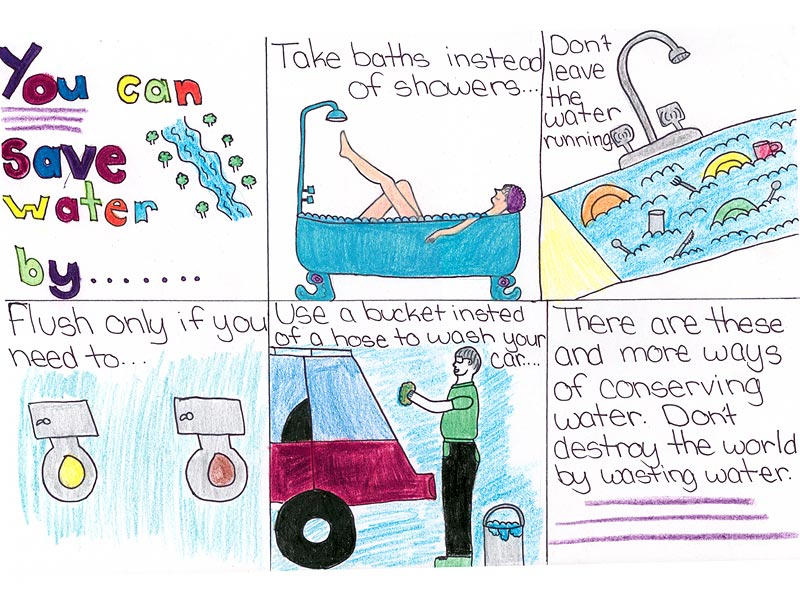 You can
save
water
by........
Take baths instead
of showers...
Don't
leave
the
water
running
Flush only if you
need to...
Use a bucket insted
of a hose to wash your
car....
There are these
and more ways
of conserving
water. Don't
destroy the world
by wasting water.